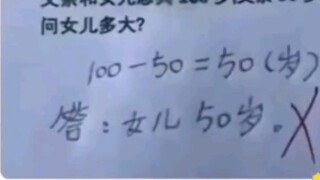 问女儿多大?
100-50=50(岁)
答:女儿50岁。